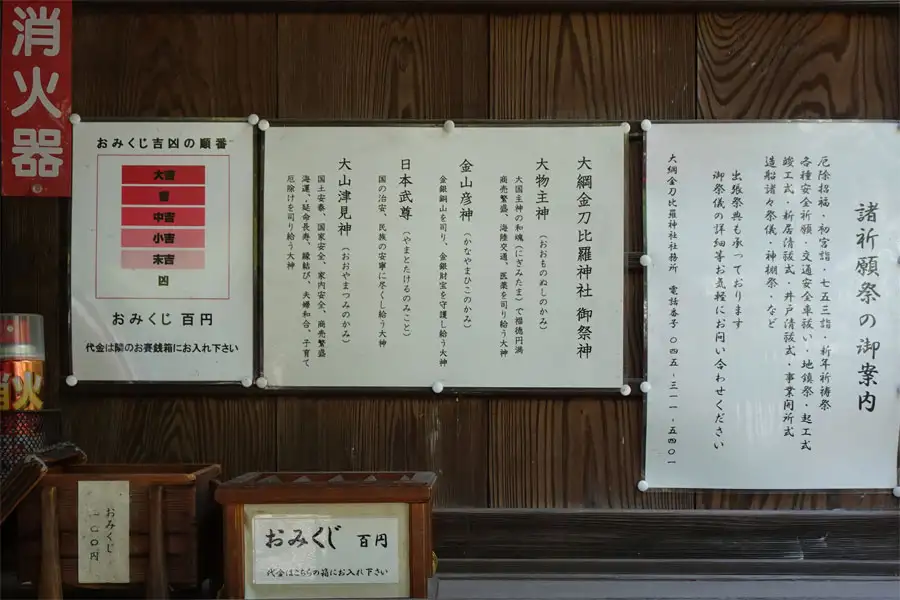 消火器
おみくじ吉凶の順番
大吉
吉
中吉
小吉
末吉
凶
おみくじ 百円
代金は隣のお賽銭箱にお入れ下さい
大綱金刀比羅神社 御祭神
大物主神(おおものぬしのかみ)
大国主神の和魂(にぎみたま)で福徳円満
商売繁盛、海陸交通、医薬を司り給う大神
金山彦神(かなやまひこのかみ)
金銀銅山を司り、金銀財宝を守護し給う大神
日本武尊(やまとたけるのみこと)
国の治安、民族の安寧に尽くし給う大神
大山津見神(おおやまつみのかみ)
国土安泰、国家安全、家内安全、商売繁盛
海運、延命長寿、縁結び、夫婦和合、子育て
厄除けを司り給う大神
諸祈願祭の御案内
厄除招福・初宮詣・七五三詣・新年祈祷祭
各種安全祈願・交通安全車祓い・地鎮祭・起工式
竣工式・新居清祓式・井戸清祓式・事業開所式
造船諸々祭儀・神棚祭・など
出張祭典も承っております
御祭儀の詳細等お気軽にお問い合わせください
大綱金刀比羅神社社務所 電話番号 〇四五-三一一-五四〇一
消火
おみくじ
一〇〇円
おみくじ 百円
代金はこちらの箱にお入れ下さい